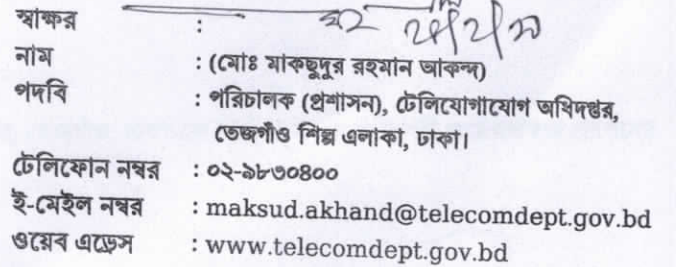 স্বাক্ষর :
নাম : (মোঃ মাকছুদুর রহমান আকন্দ)
পদবি : পরিচালক (প্রশাসন), টেলিযোগাযোগ অধিদপ্তর,
তেজগাঁও শিল্প এলাকা, ঢাকা।
টেলিফোন নম্বর : ০২-৯৮৩০৪০০
ই-মেইল নম্বর : maksud.akhand@telecomdept.gov.bd
ওয়েব এড্রেস : www.telecomdept.gov.bd